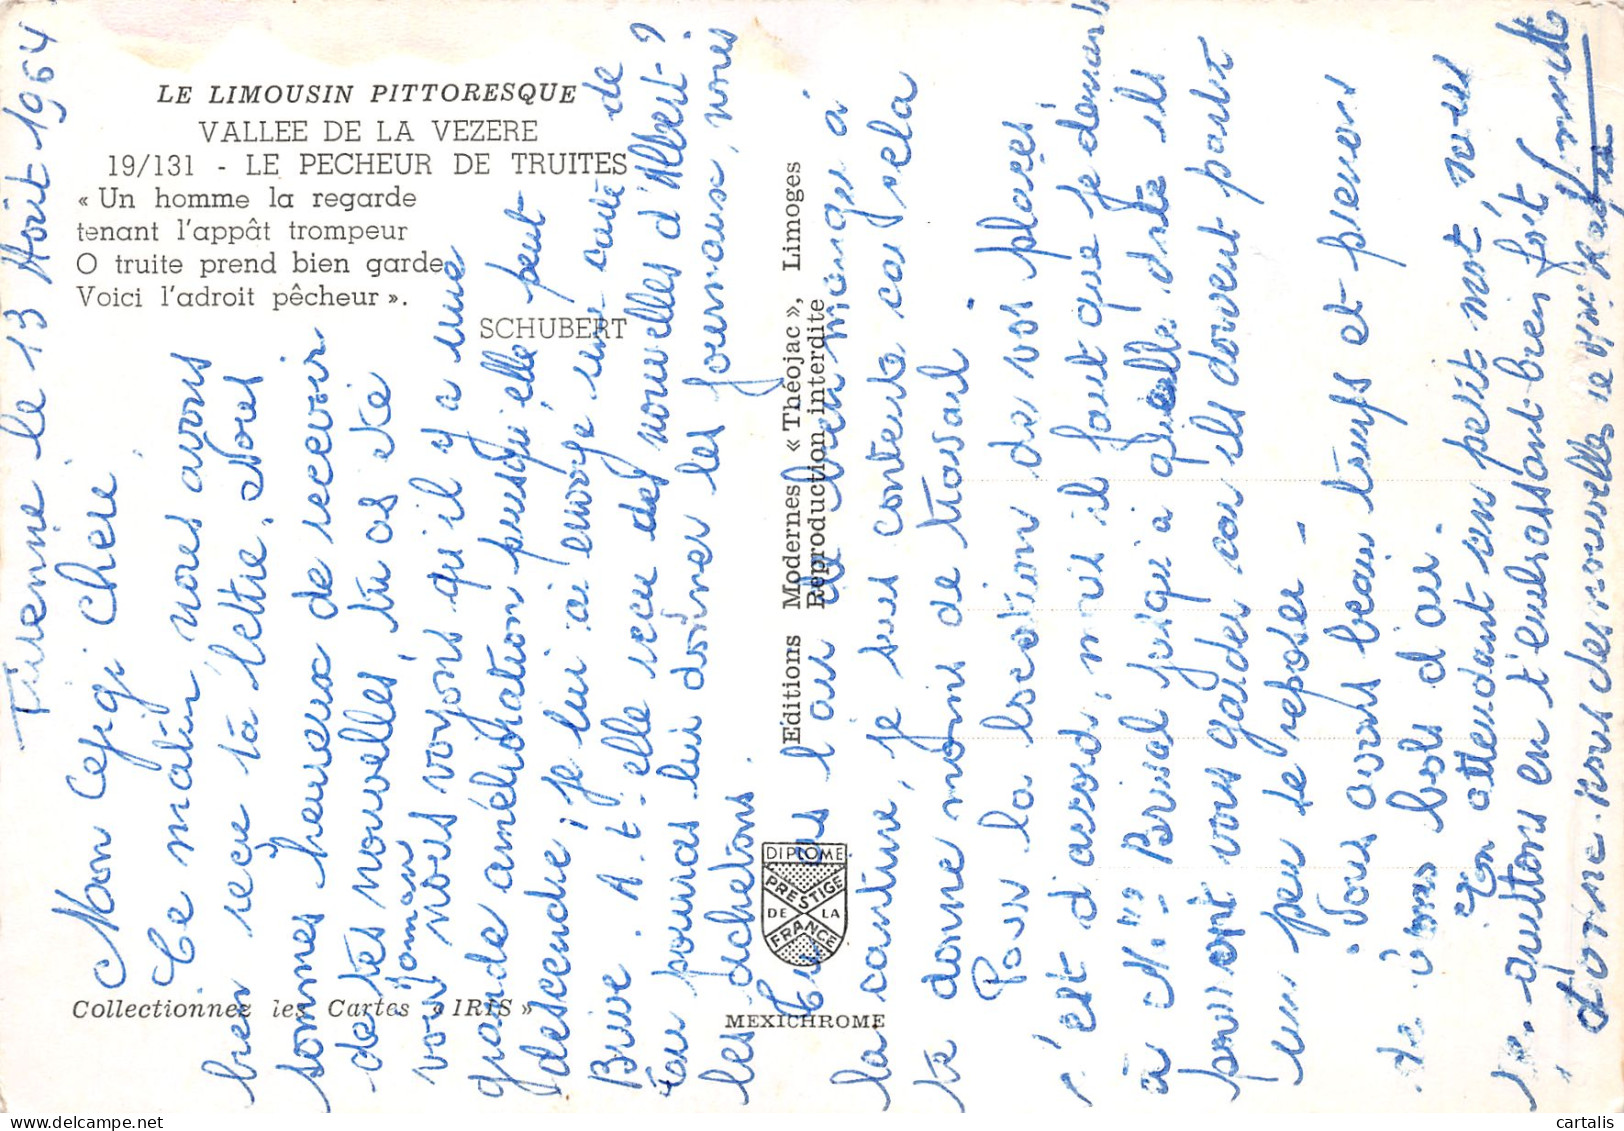 LE LIMOUSIN PITTORESQUE
VALLEE DE LA VEZERE
19/131 - LE PECHEUR DE TRUITES
« Un homme la regarde
tenant l'appât trompeur
O truite prend bien garde
Voici l'adroit pêcheur ».
SCHUBERT
Collectionnez les Cartes « IRIS »
Editions Modernes « Théojac », Limoges
Reproduction interdite
DIPLOME
PRESTIGE
DE LA
FRANCE
MEXICHROME
Turenne le 13 Août 1964
Mon Chéri
Ce matin nous avons
bien reçu ta lettre, Nous
sommes heureux de recevoir
de tes nouvelles, tu as été
voir maman nous voyons qu'il y a une
grande amélioration puisqu'elle peut
descendre, je lui ai envoyé une carte de
Brive. A-t-elle reçu des nouvelles d'Albert ?
Tu pourras lui donner les journaux, nous
les achetons.
Tu as l'air de bien manger à
la cantine, je suis contente car cela
te donne moins de travail
Pour la location de vos places
c'est d'accord, mais il faut que je demande
à Mr Brisal jusqu'à quelle date ils
pourront vous garder car ils doivent partir
un peu se reposer -
Nous avons beau temps et prenons
de bols d'air.
En attendant un petit mot, nous
te quittons en t'embrassant bien fort
donne-nous des nouvelles